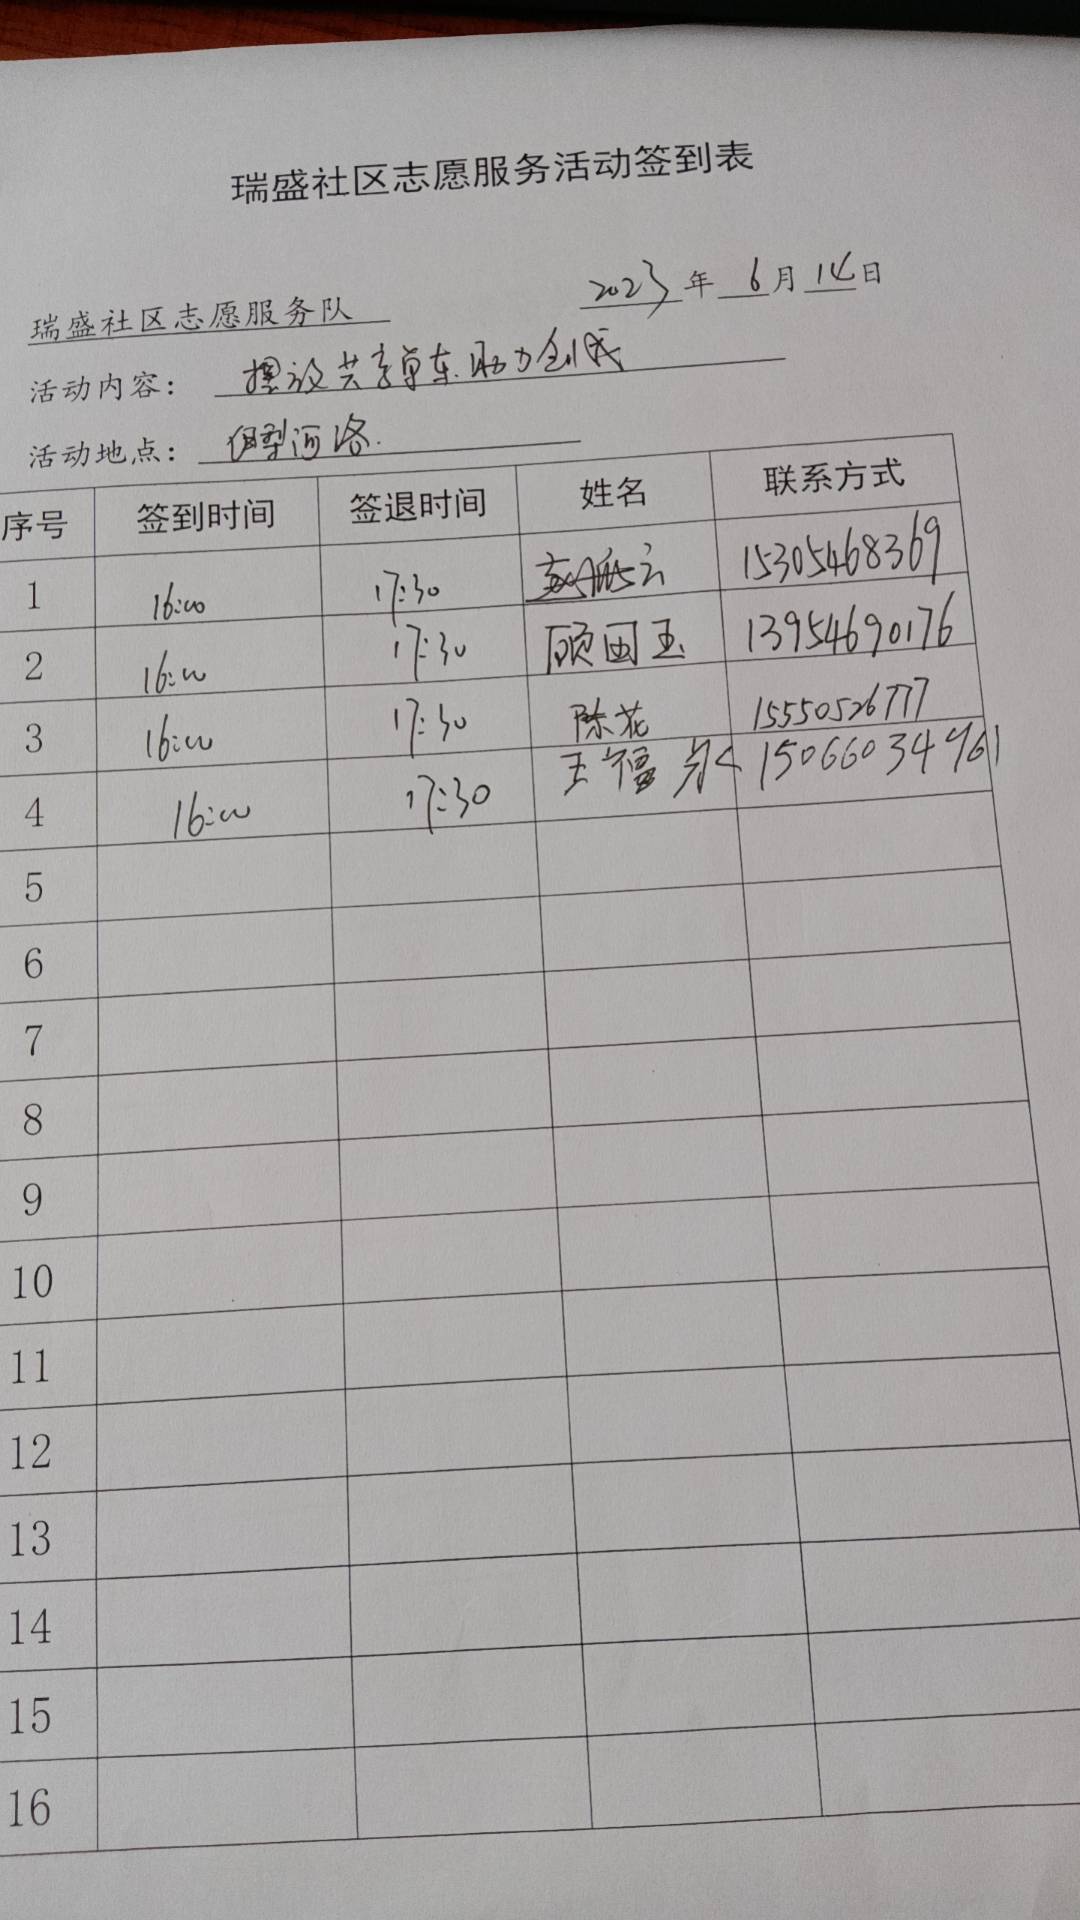 瑞盛社区志愿服务活动签到表
瑞盛社区志愿服务队 2023年6月14日
活动内容: 摆放共享单车.助力创城
活动地点: 伊犁河路.
序号 签到时间 签退时间 姓名 联系方式
1 16:00 17:30 云 15305468369
2 16:00 17:30 顾国玉 13954690176
3 16:00 17:30 陈花 15550526777
4 16:00 17:30 王福泉 15066034961
5
6
7
8
9
10
11
12
13
14
15
16